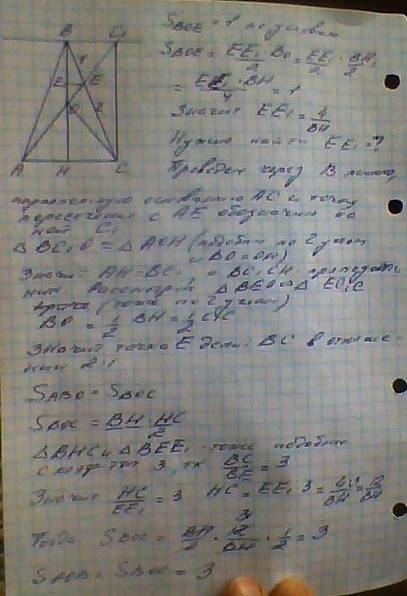 B C₁
1
E₁ E
O 2
A H C
S_BOE = 1 по условию
S_BOE = EE₁/2 · BO = EE₁/2 · BH/2
= EE₁·BH/4 = 1
Значит EE₁ = 4/BH
Нужно найти EE₁ = ?
Проведем через B линию,
параллельную основанию AC и точку
пересечения с AE обозначим за
C₁
△BC₁O = △AOH (подобны по 2 углам
и BO = OH)
Значит AH = BC₁ и BC₁CH - прямоуголь
ник. Рассмотрим △BEO и △EC₁C
(тоже по 2 углам)
BO = 1/2 BH = 1/2 C₁C
Значит точка E делит BC в отноше-
нии 2:1
S_ABO = S_BOC
S_BOC = BH·HC/2
△BHC и △BEE₁ тоже подобны
с коэффиц 3, тк BC/BE = 3
Значит HC/EE₁ = 3 HC = EE₁·3 = 4·3/BH = 12/BH
Тогда S_BOC = BH/2 · 12/BH · 1/2 = 3
S_AOB = S_BOC = 3